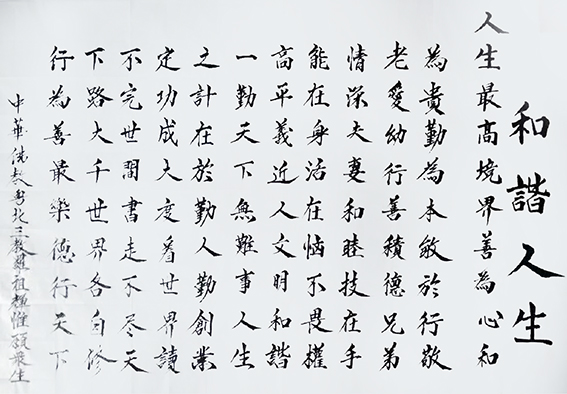 和諧人生
人生最高境界善為心和
為貴勤為本敏於行敬
老愛幼行善積德兄弟
情深夫妻和睦技在手
能在身活在惱不畏權
高平義近人文明和諧
一勤天下無難事人生
之計在於勤人勤創業
定功成大度看世界讀
不完世間書走不尽天
下路大千世界各自修
行為善最樂德行天下
中華 北三教羅祖 眾生